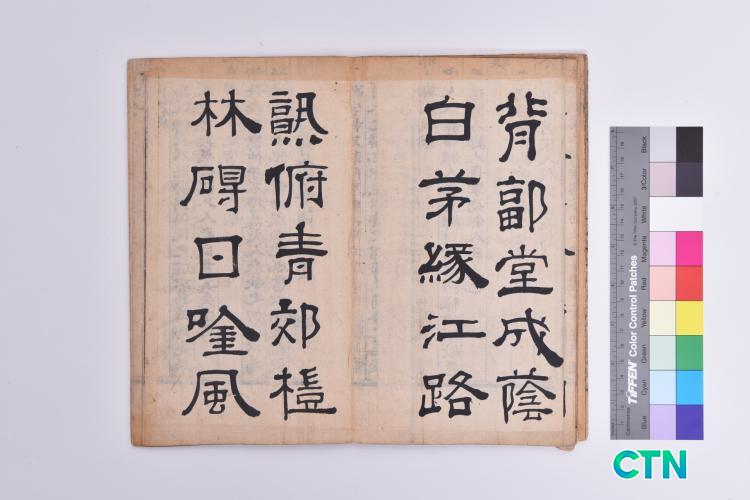 背郭堂成蔭
白茅緣江路
熟俯青郊榿
林碍日唫風
Black
3/Color
White
Magenta
Red
Yellow
Green
Cyan
Blue
TIFFEN Color Control Patches
© The Tiffen Company, 2007
CTN